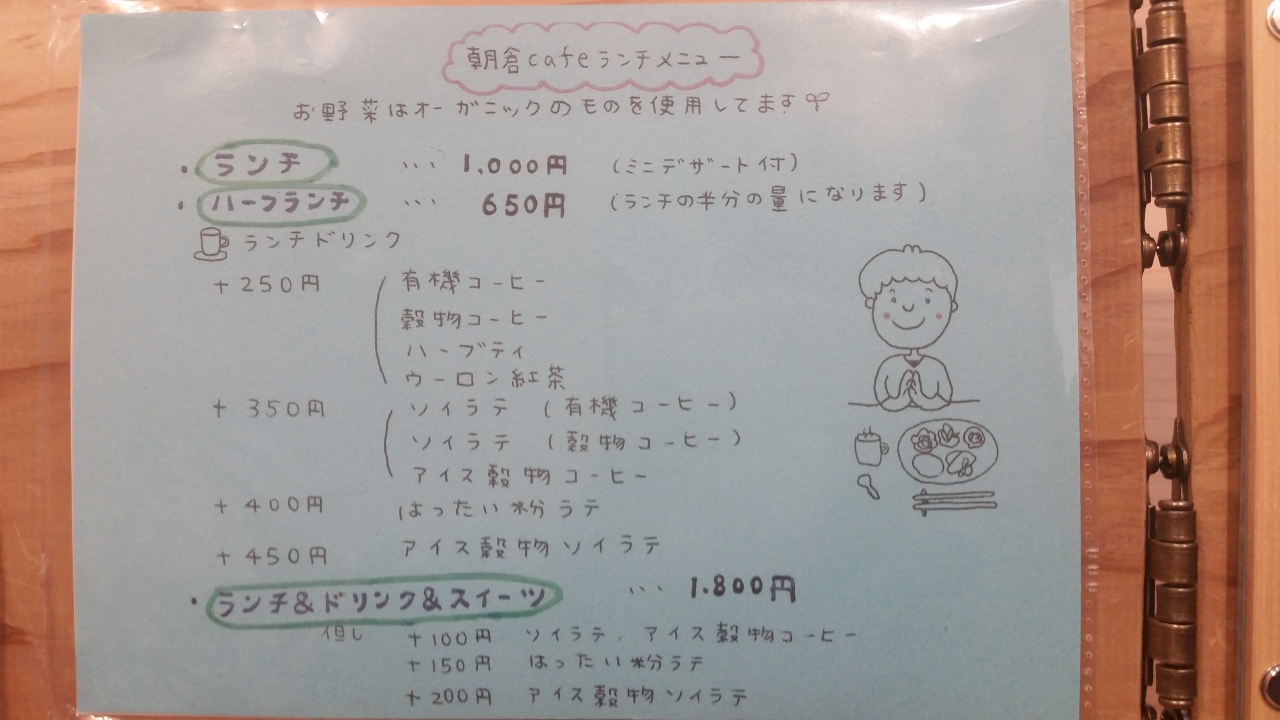 朝倉cafeランチメニュー
お野菜はオーガニックのものを使用してます
・ランチ … 1.000円 (ミニデザート付)
・ハーフランチ … 650円 (ランチの半分の量になります)
ランチドリンク
+250円 有機コーヒー
穀物コーヒー
ハーブティ
ウーロン紅茶
+350円 ソイラテ (有機コーヒー)
ソイラテ (穀物コーヒー)
アイス穀物コーヒー
+400円 はったい粉ラテ
+450円 アイス穀物ソイラテ
・ランチ&ドリンク&スイーツ … 1.800円
但し +100円 ソイラテ、アイス穀物コーヒー
+150円 はったい粉ラテ
+200円 アイス穀物ソイラテ